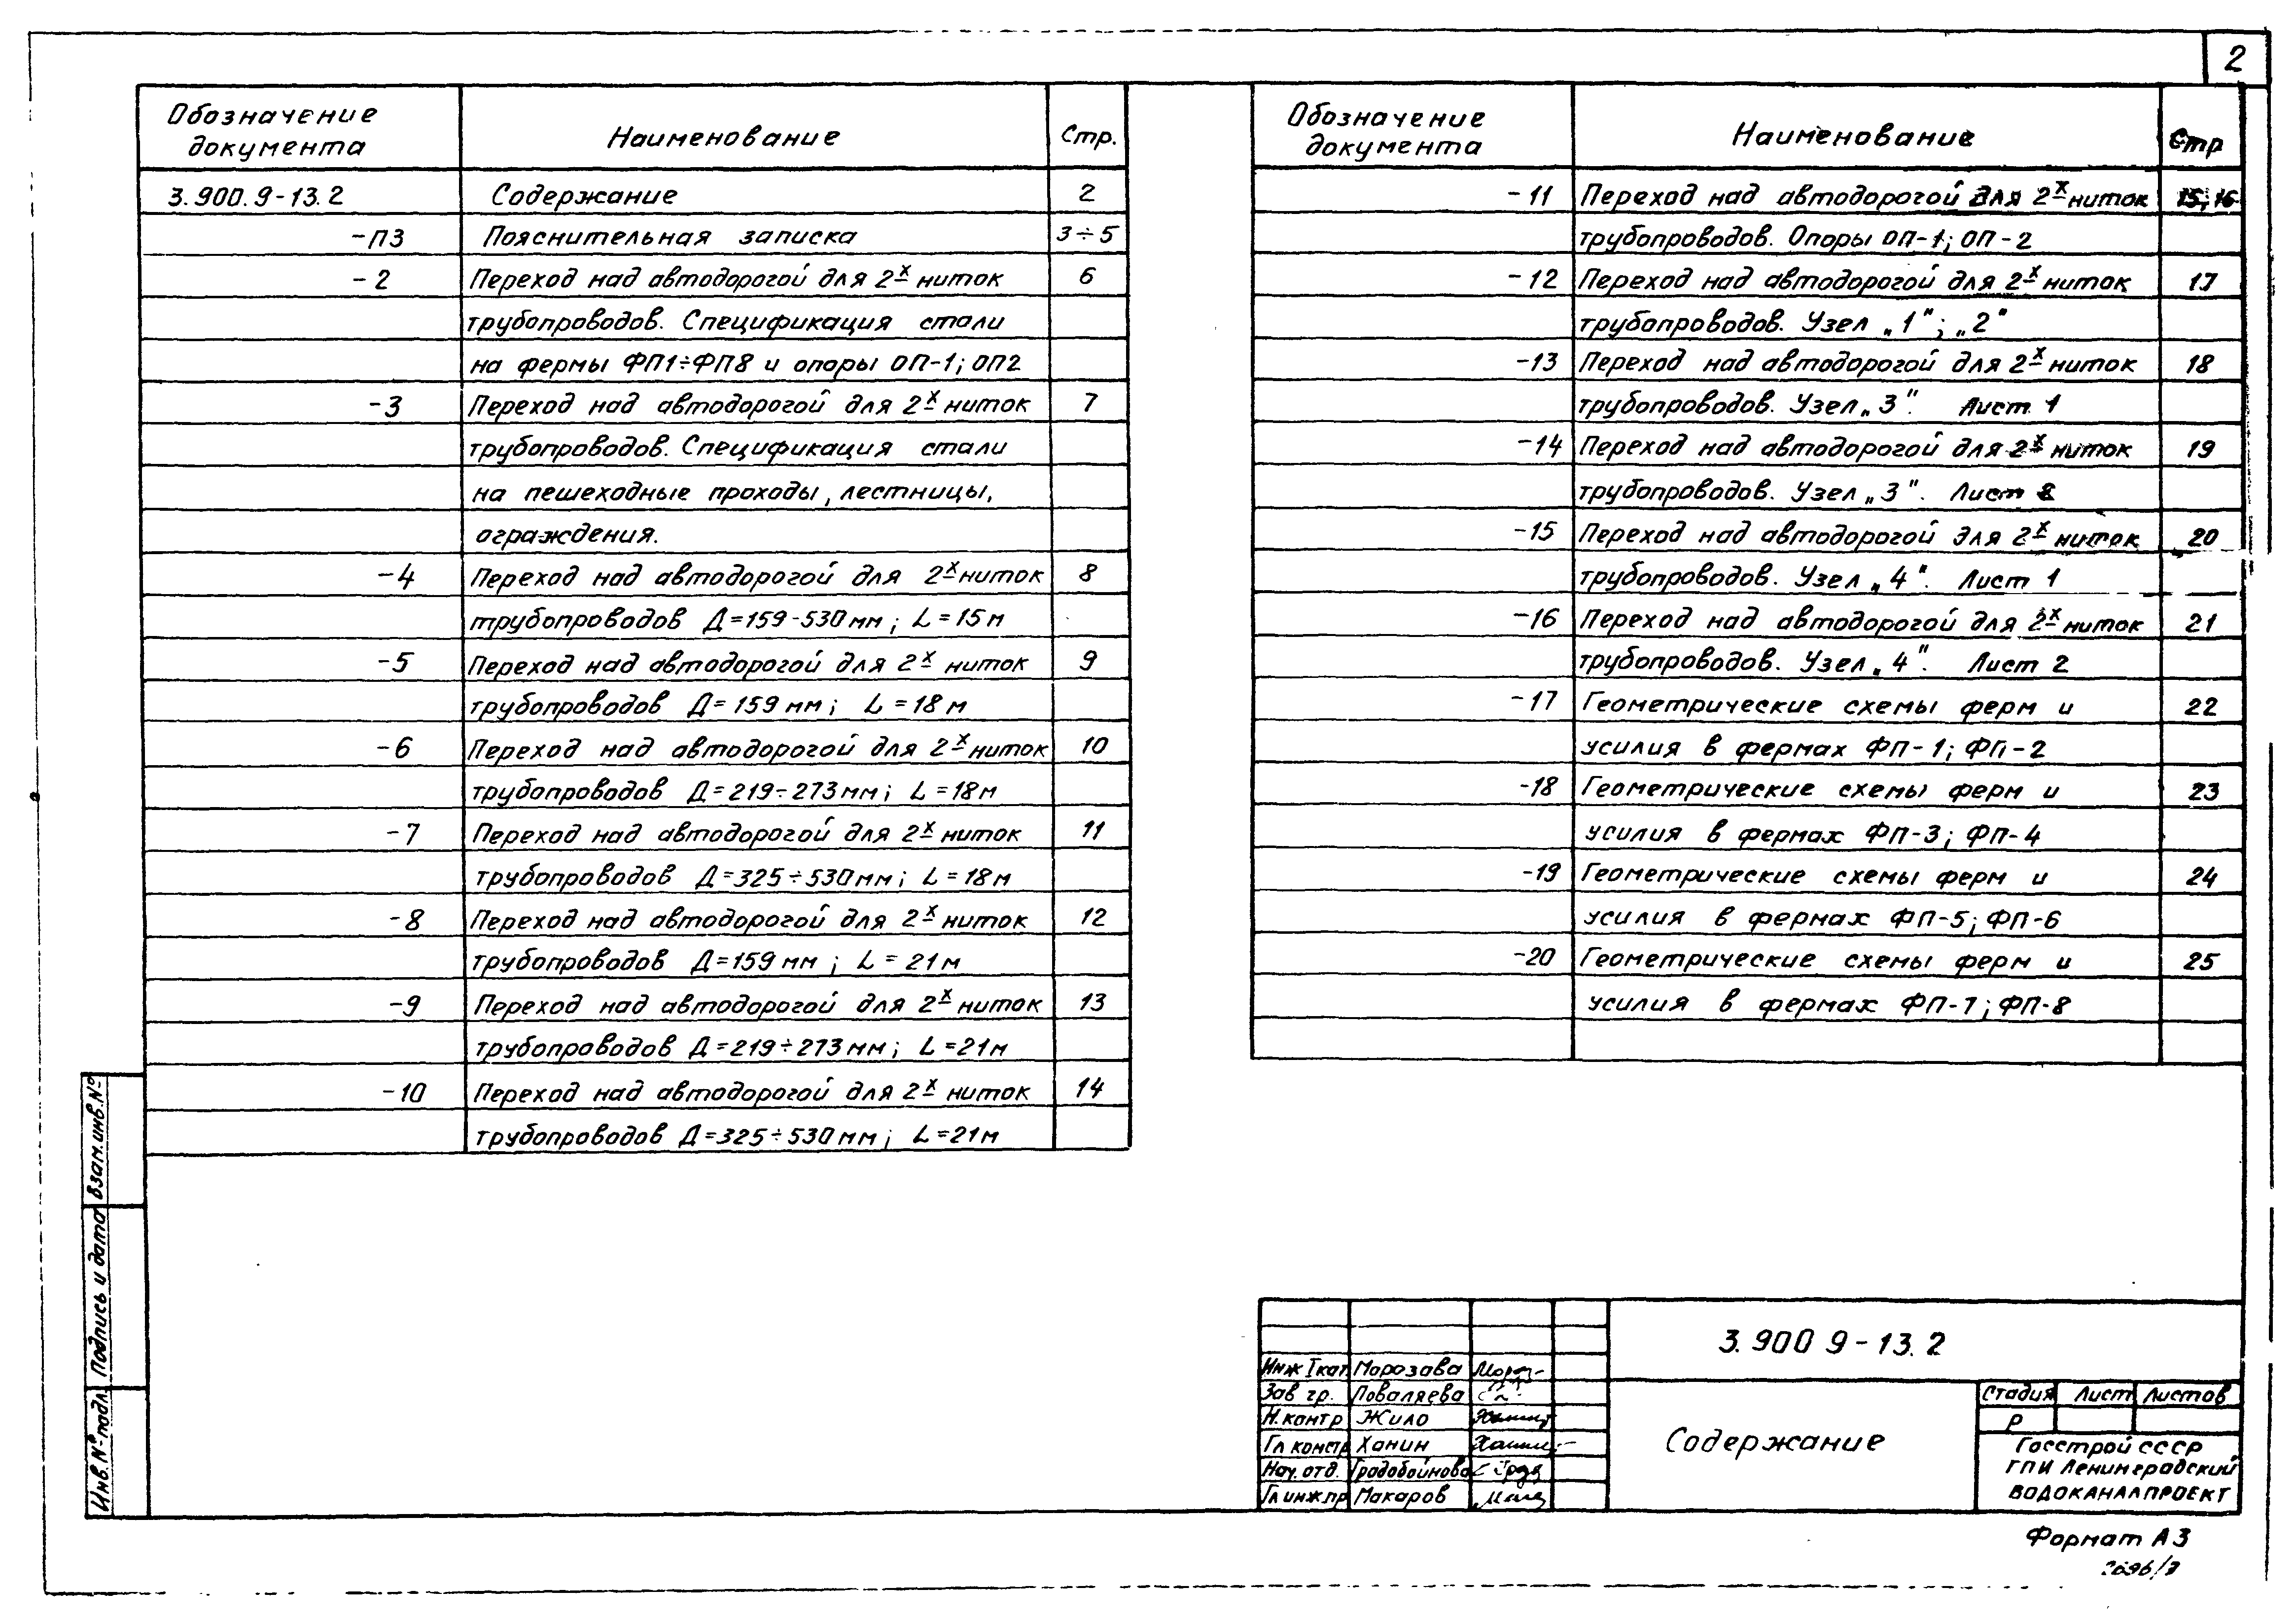 2
Обозначение документа Наименование Стр.
3.900.9-13.2 Содержание 2
-ПЗ Пояснительная записка 3÷5
-2 Переход над автодорогой для 2х ниток 6
трубопроводов. Спецификация стали
на фермы ФП1÷ФП8 и опоры ОП-1; ОП2
-3 Переход над автодорогой для 2х ниток 7
трубопроводов. Спецификация стали
на пешеходные проходы, лестницы,
ограждения.
-4 Переход над автодорогой для 2х ниток 8
трубопроводов Д=159-530мм; L=15м
-5 Переход над автодорогой для 2х ниток 9
трубопроводов Д=159мм; L=18м
-6 Переход над автодорогой для 2х ниток 10
трубопроводов Д=219÷273мм; L=18м
-7 Переход над автодорогой для 2х ниток 11
трубопроводов Д=325÷530мм; L=18м
-8 Переход над автодорогой для 2х ниток 12
трубопроводов Д=159мм; L=21м
-9 Переход над автодорогой для 2х ниток 13
трубопроводов Д=219÷273мм; L=21м
-10 Переход над автодорогой для 2х ниток 14
трубопроводов Д=325÷530мм; L=21м
Обозначение документа Наименование Стр
-11 Переход над автодорогой для 2х ниток 15,16
трубопроводов. Опоры ОП-1; ОП-2
-12 Переход над автодорогой для 2х ниток 17
трубопроводов. Узел „1"; „2"
-13 Переход над автодорогой для 2х ниток 18
трубопроводов. Узел „3". Лист 1
-14 Переход над автодорогой для 2х ниток 19
трубопроводов. Узел „3". Лист 2
-15 Переход над автодорогой для 2х ниток 20
трубопроводов. Узел „4". Лист 1
-16 Переход над автодорогой для 2х ниток 21
трубопроводов. Узел „4". Лист 2
-17 Геометрические схемы ферм и 22
усилия в фермах ФП-1; ФП-2
-18 Геометрические схемы ферм и 23
усилия в фермах ФП-3; ФП-4
-19 Геометрические схемы ферм и 24
усилия в фермах ФП-5; ФП-6
-20 Геометрические схемы ферм и 25
усилия в фермах ФП-7; ФП-8
Взам.инв.№
Подпись и дата
Инв.№ подл.
3.900 9-13.2
Инж I кат. Морозава
Зав гр. Поваляева
Н.контр Жило
Гл констр Ханин
Нач.отд. Градобойнова
Гл инж.пр Макаров
Содержание
Стадия Лист Листов
Р
Госстрой СССР
ГПИ Ленинградский
ВОДОКАНАЛПРОЕКТ
Формат А3